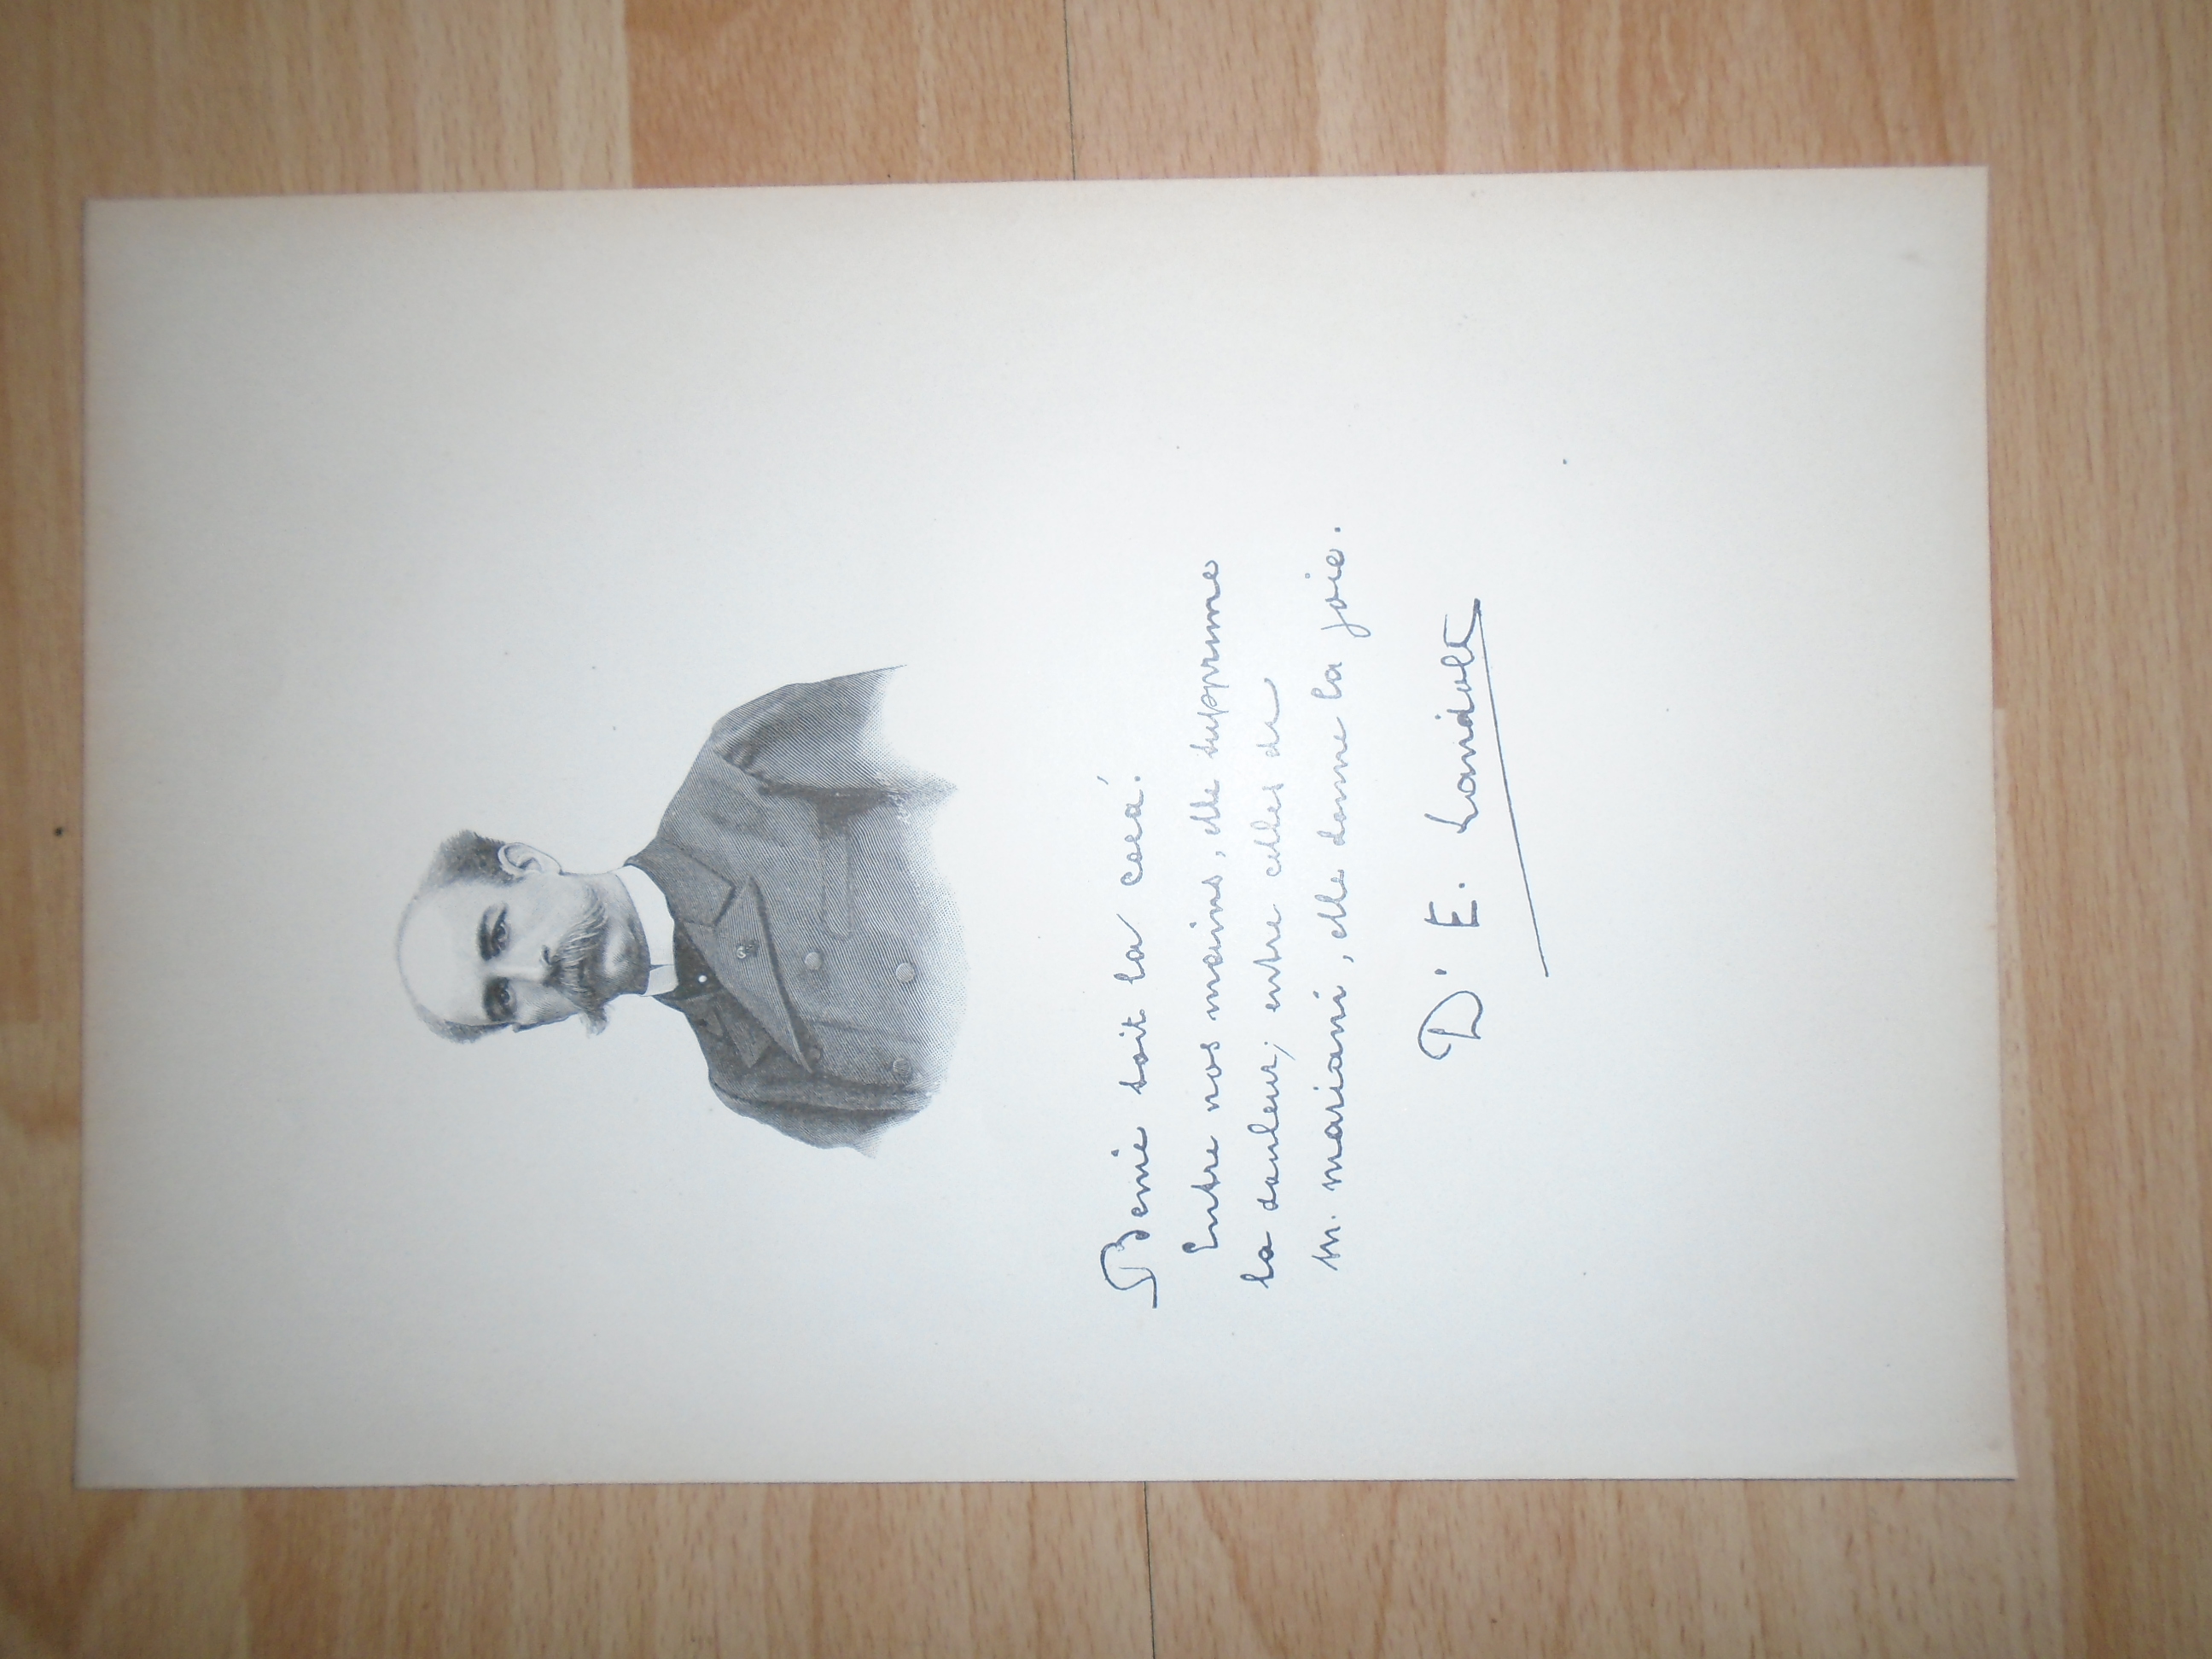 Benie soit la coca.
Entre nos mains, elle supprime
la douleur; entre celles de
M. Mariani, elle donne la joie.
Dr E. Landolt